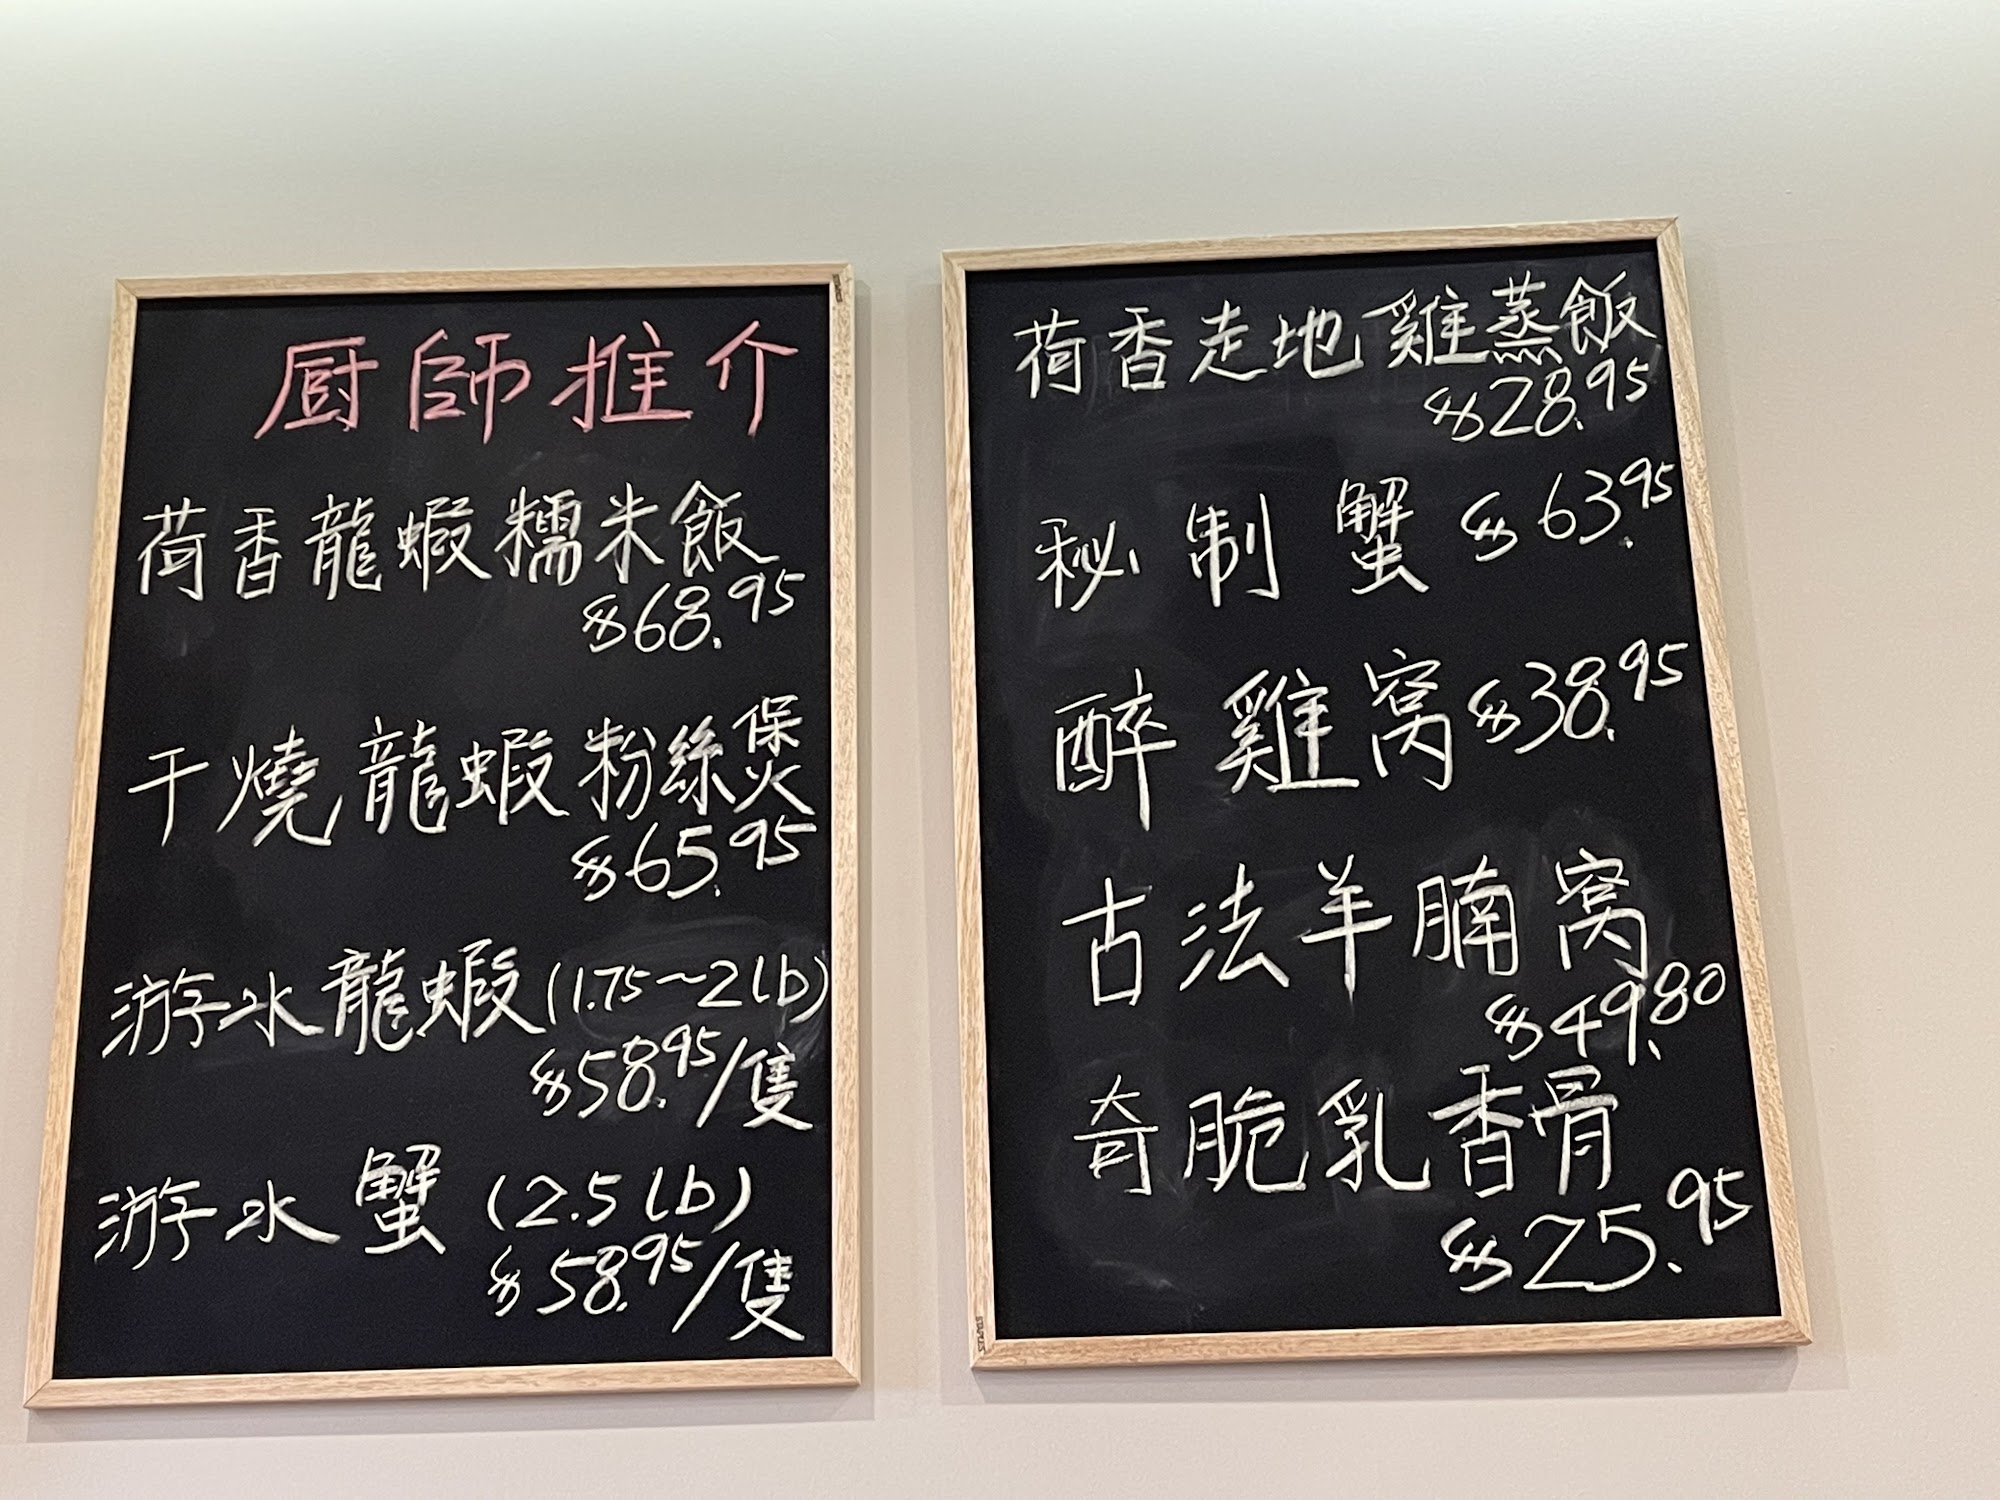 厨師推介
荷香龍蝦糯米飯
$68.95
干燒龍蝦粉絲煲
$65.95
游水龍蝦(1.75~2lb)
$58.95/隻
游水蟹(2.5lb)
$58.95/隻
荷香走地雞蒸飯
$28.95
秘制蟹 $63.95
醉雞窝 $38.95
古法羊腩窝
$49.80
奇脆乳香骨
$25.95